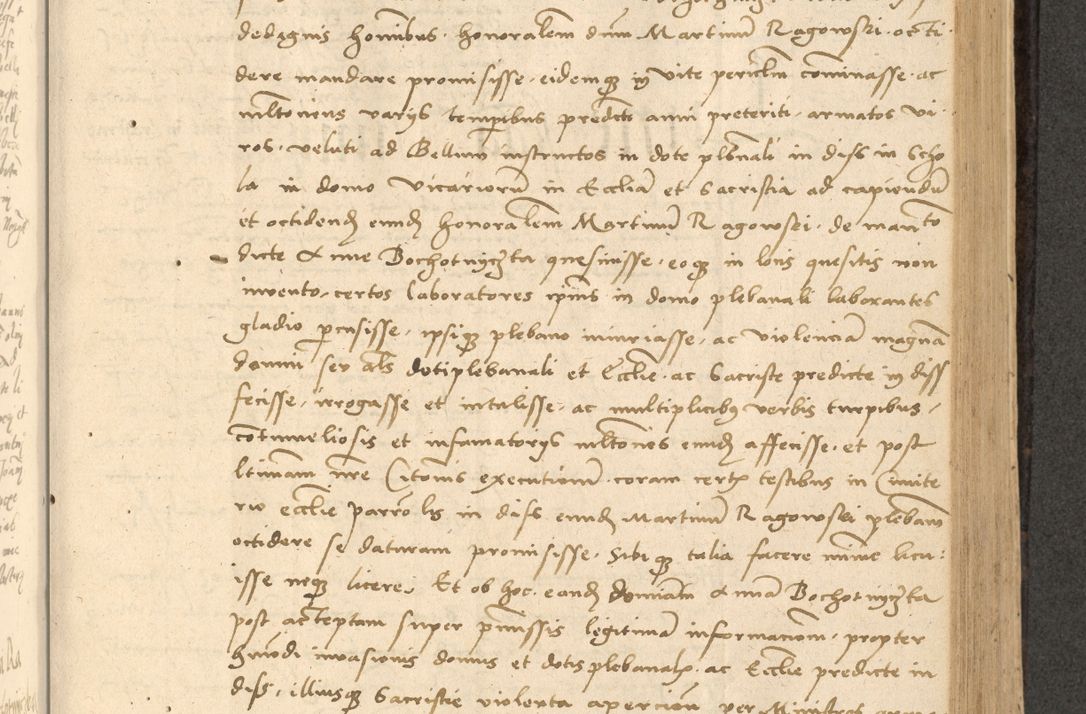 dedignis hominibus honoralem dnm Martinum Ragowski occi
dere mandare promisisse, eidemque in vite periculum cominasse ac
mltoriens varijs temporibus predicte anni preteriti armatos vi
ros, veluti ad Bellum instructos in dote plbnali in diss in Scho
la in domo vicariorum in Ecclia et Sacristia ad capiendum
et occidend eund honoralem Martinum Ragowsei de manto
dicte Anne Bochotnyczta quesiuisse, eoque in locis quesitis non
invento, certos laboratores ipius in domo plebanali laborantes
gladio percusisse, ipsique plebano iniuriasse, ac violenciam magnam
domui seu als doti plebanali et Ecclie ac Sacristie predicte in diss
fecisse, irrogasse et intulisse, ac multiplicibus verbis turpibus,
cotumeliosis et infamatorijs mltories eund affecisse, et post
ltimam nre Citonis executionem coram certis testibus in Cimite
rio ecclie parrolis in diss eund Martinum Ragowsei plebanum
occidere se daturam promisisse, Sibique talia facere mime licu
isse neque licere. Et ob hoc eand domiam Annam Bochotnyczta
post acceptam super pmissis legitimam informacionem, propter
hmodi invasionis domus et dotis plebanalis ac Ecclie predicte in
diss, illiusque Sacristie violenta apercion per Ministros